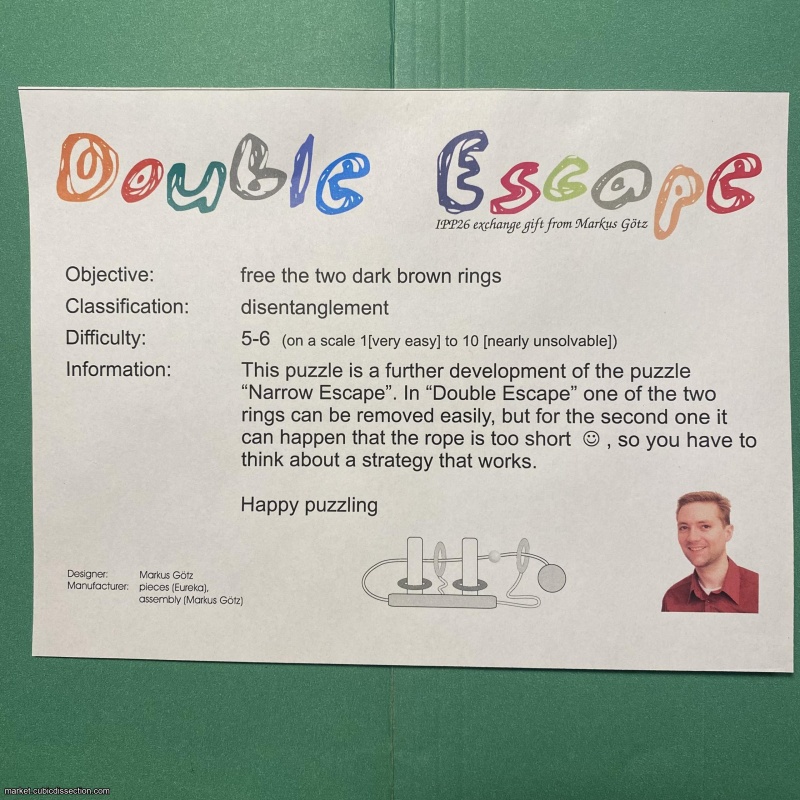 Double Escape
IPP26 exchange gift from Markus Götz
Objective: free the two dark brown rings
Classification: disentanglement
Difficulty: 5-6 (on a scale 1[very easy] to 10 [nearly unsolvable])
Information: This puzzle is a further development of the puzzle
“Narrow Escape”. In “Double Escape” one of the two
rings can be removed easily, but for the second one it
can happen that the rope is too short ☺ , so you have to
think about a strategy that works.
Happy puzzling
Designer: Markus Götz
Manufacturer: pieces (Eureka),
assembly (Markus Götz)
market.cubicdissection.com